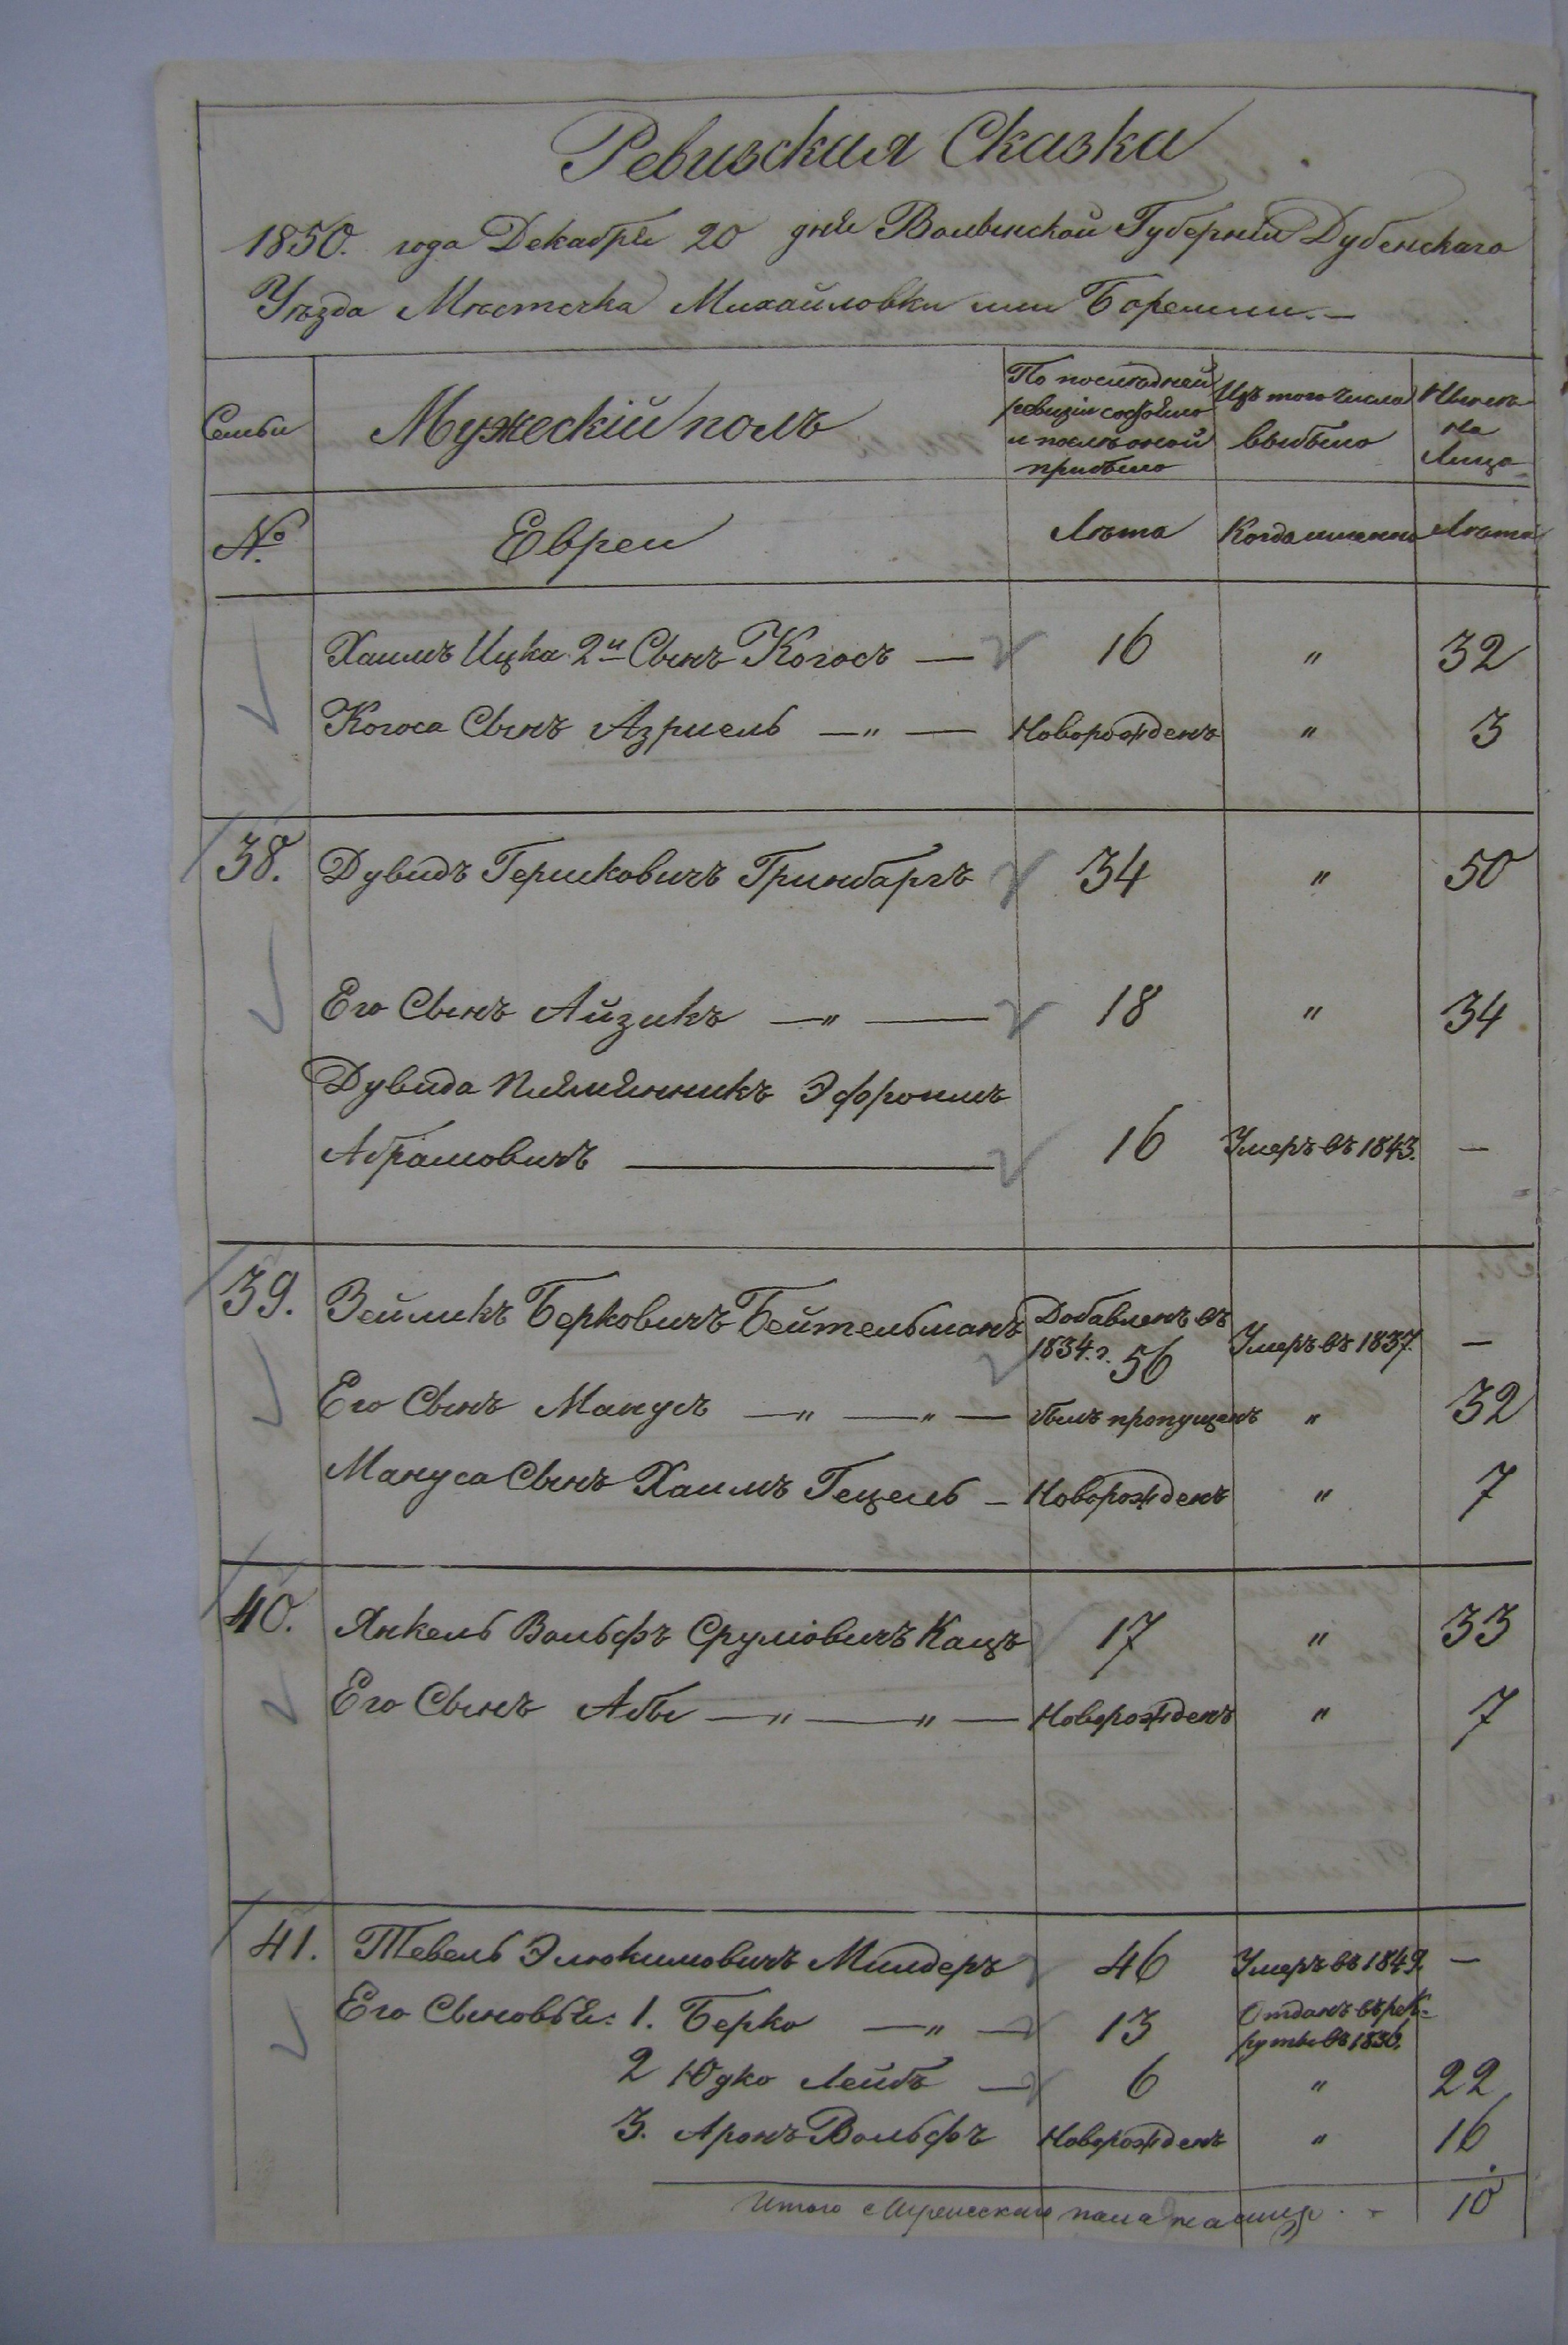 Ревизская Сказка
1850. года Декабря 20 дня Волынской Губерніи Дубенскаго
Уѣзда Мѣстечка Михайловки или Боремли. —
Семьи
Мужескій полъ
По послѣдней
ревизіи состояло
и послѣ оной
прибыло
Изъ того числа
выбыло
Нынѣ
на
Лицо
№
Евреи
Лѣта
Когда именно
Лѣта
Хаимъ Ицка 2й Сынъ Когосъ — 16 " 32
Когоса Сынъ Азриель —"— Новорожденъ " 3
38. Дувидъ Гершковичъ Гринбаргъ 34 " 50
Его Сынъ Айзикъ —"— 18 " 34
Дувида Племянникъ Эфроимъ
Абрамовичъ — 16 Умеръ въ 1843. —
39. Зейликъ Берковичъ Бейтельманъ Добавленъ въ
1834. г. 56 Умеръ въ 1837. —
Его Сынъ Манусъ —"—"— былъ пропущенъ " 32
Мануса Сынъ Хаимъ Гецель — Новорожденъ " 7
40. Янкель Вольфъ Сруліовичъ Кацъ 17 " 33
Его Сынъ Абы —"—"— Новорожденъ " 7
41. Тевель Элюкимовичъ Миндеръ 46 Умеръ въ 1849. —
Его Сыновья: 1. Берко —"— 13 Отданъ въ рек-
руты въ 1836.
2 Юдко Лейбъ — 6 " 22
3. Аронъ Вольфъ Новорожденъ " 16.
Итого Мужескаго пола на лицо 10